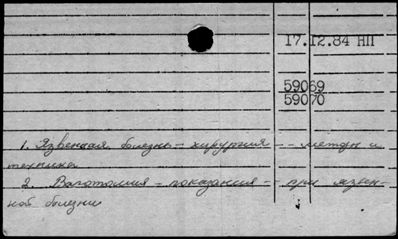 17.12.84 НП
59069
59070
1. Язвенная болезнь - хирургия - - методы и
техника
2. Ваготомия - показания - - при язвен-
ной болезни